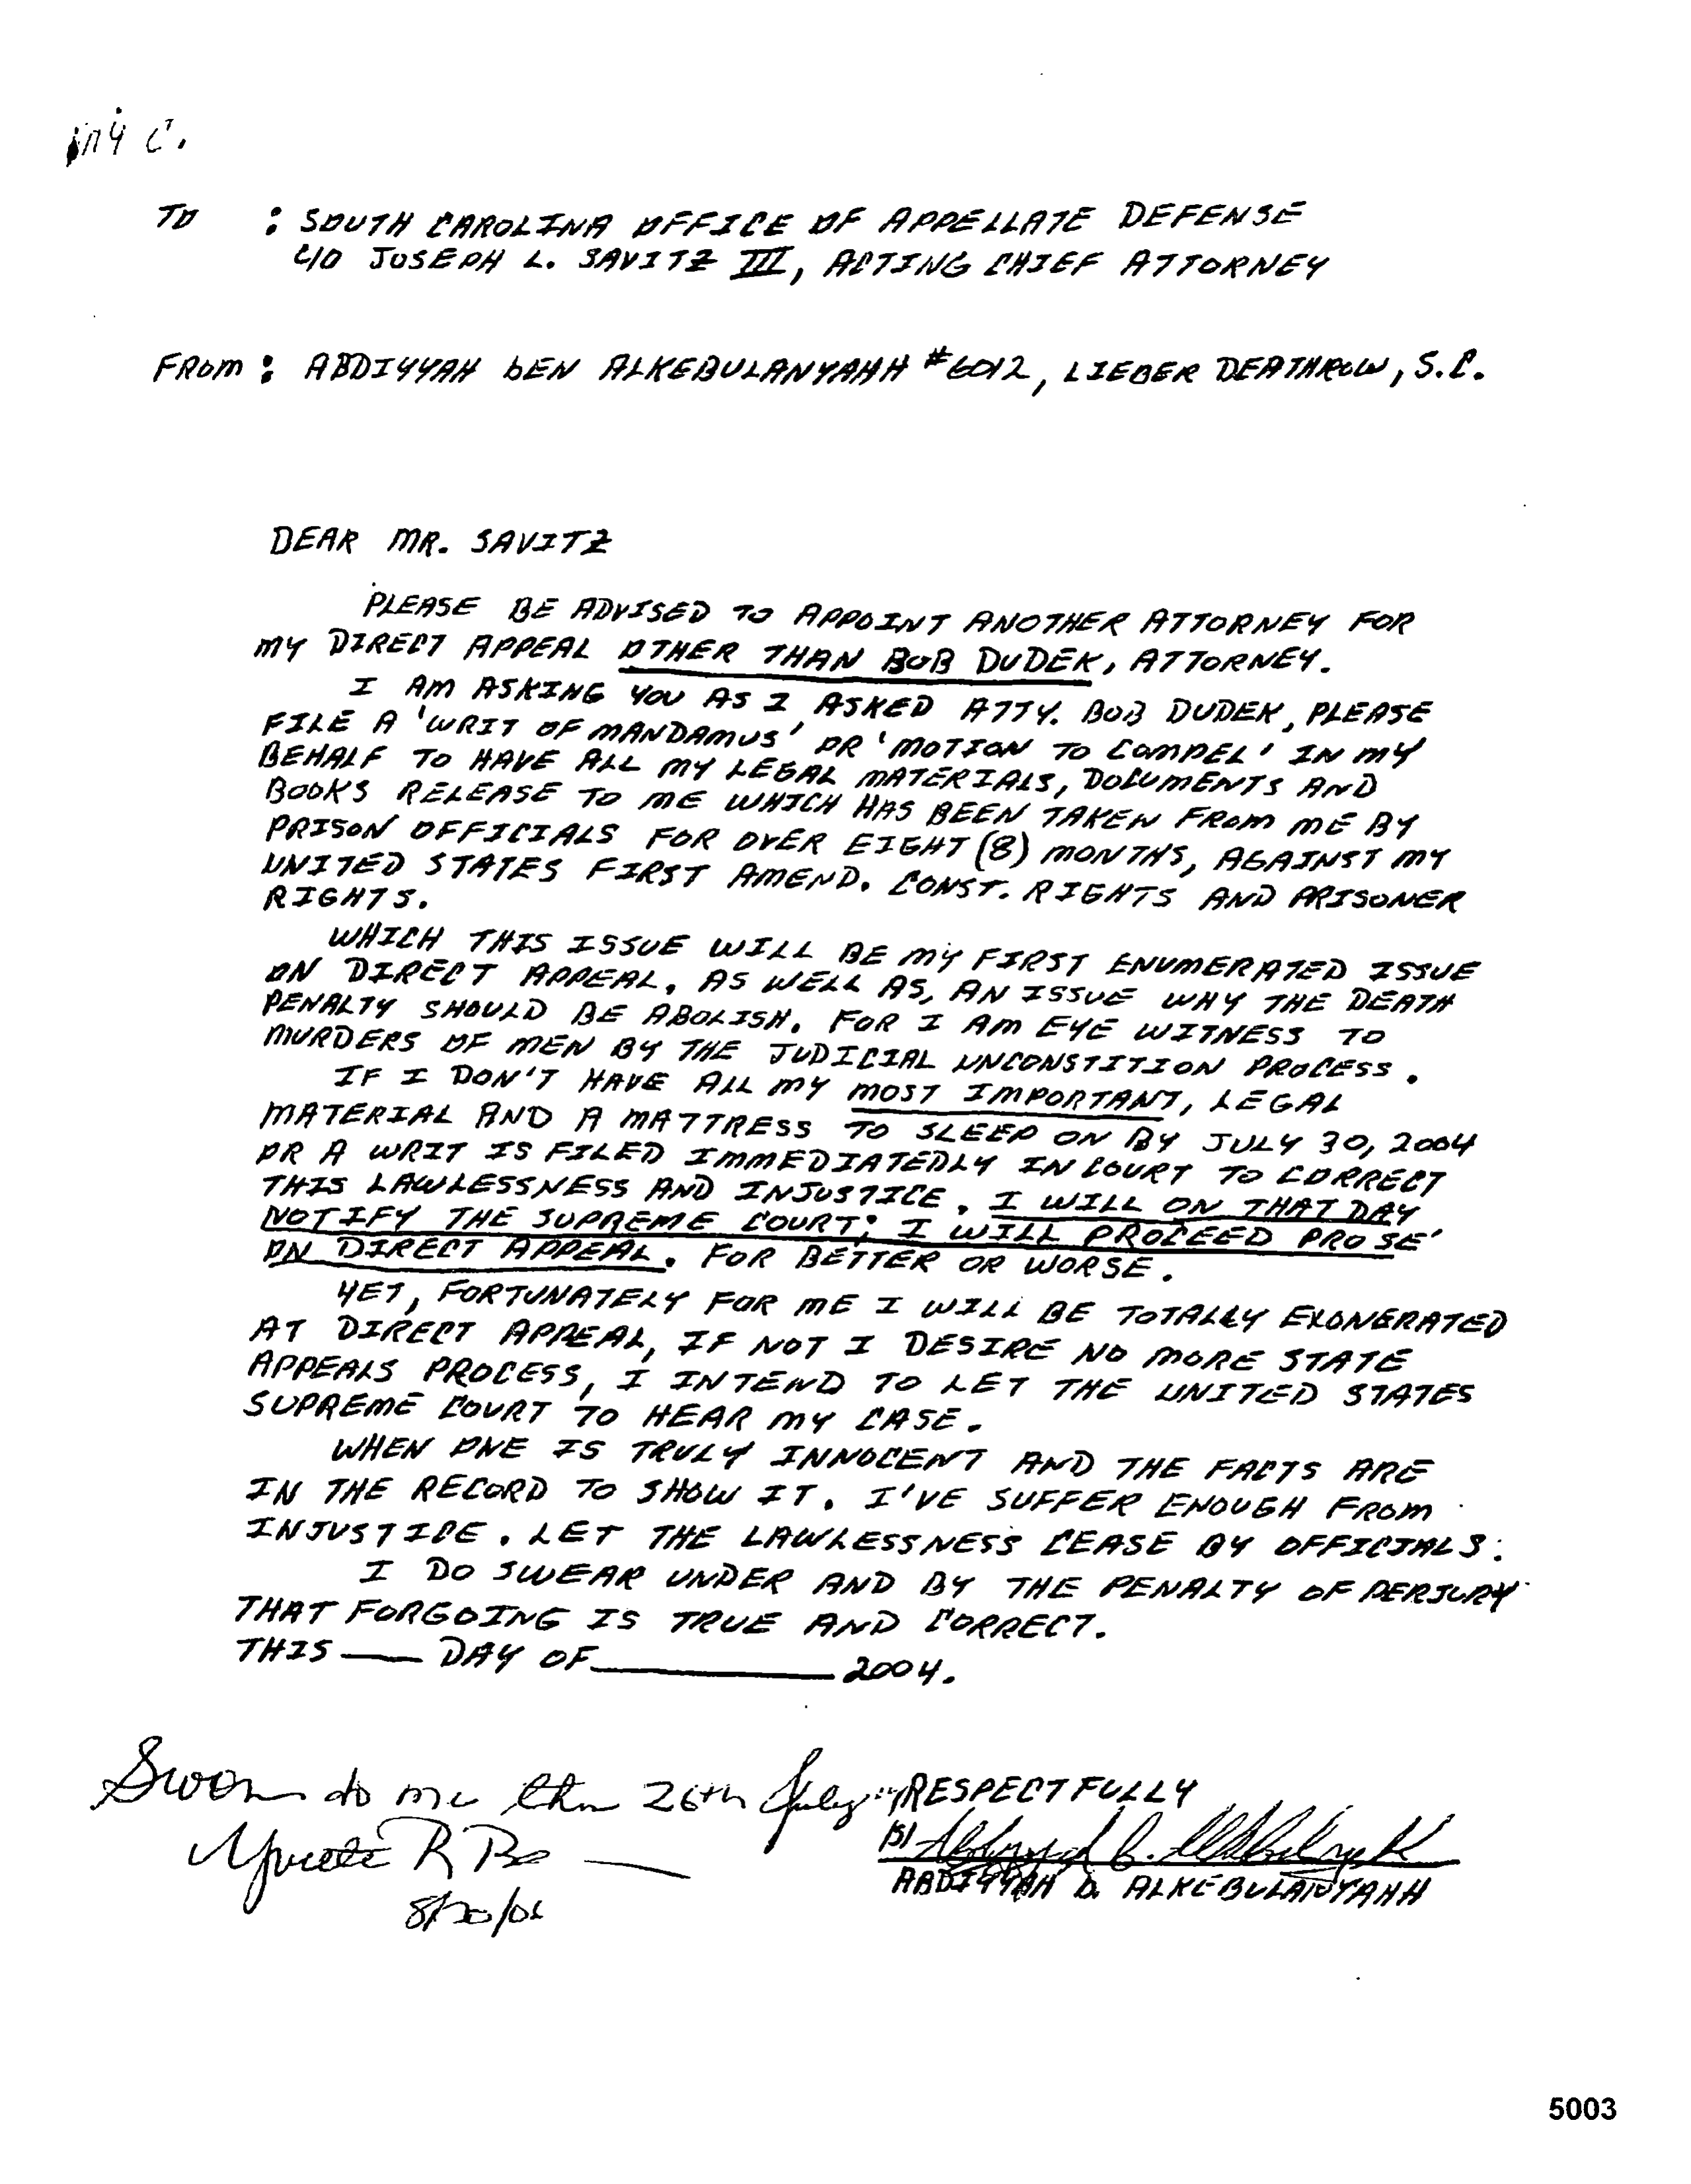 my C.
TO : SOUTH CAROLINA OFFICE OF APPELLATE DEFENSE
C/O JOSEPH L. SAVITZ III, ACTING CHIEF ATTORNEY
FROM : ABDIYYAH bEN ALKEBULANYAHH #6012, LIEBER DEATHROW, S.C.
DEAR MR. SAVITZ
PLEASE BE ADVISED TO APPOINT ANOTHER ATTORNEY FOR
MY DIRECT APPEAL OTHER THAN BOB DUDEK, ATTORNEY.
I AM ASKING YOU AS I ASKED ATTY. BOB DUDEK, PLEASE
FILE A 'WRIT OF MANDAMUS' OR 'MOTION TO COMPEL' IN MY
BEHALF TO HAVE ALL MY LEGAL MATERIALS, DOCUMENTS AND
BOOKS RELEASE TO ME WHICH HAS BEEN TAKEN FROM ME BY
PRISON OFFICIALS FOR OVER EIGHT (8) MONTHS, AGAINST MY
UNITED STATES FIRST AMEND. CONST. RIGHTS AND PRISONER
RIGHTS.
WHICH THIS ISSUE WILL BE MY FIRST ENUMERATED ISSUE
ON DIRECT APPEAL. AS WELL AS, AN ISSUE WHY THE DEATH
PENALTY SHOULD BE ABOLISH. FOR I AM EYE WITNESS TO
MURDERS OF MEN BY THE JUDICIAL UNCONSTITION PROCESS.
IF I DON'T HAVE ALL MY MOST IMPORTANT, LEGAL
MATERIAL AND A MATTRESS TO SLEEP ON BY JULY 30, 2004
OR A WRIT IS FILED IMMEDIATEDLY IN COURT TO CORRECT
THIS LAWLESSNESS AND INJUSTICE. I WILL ON THAT DAY
NOTIFY THE SUPREME COURT; I WILL PROCEED PRO SE'
ON DIRECT APPEAL. FOR BETTER OR WORSE.
YET, FORTUNATELY FOR ME I WILL BE TOTALLY EXONERATED
AT DIRECT APPEAL, IF NOT I DESIRE NO MORE STATE
APPEALS PROCESS, I INTEND TO LET THE UNITED STATES
SUPREME COURT TO HEAR MY CASE.
WHEN ONE IS TRULY INNOCENT AND THE FACTS ARE
IN THE RECORD TO SHOW IT. I'VE SUFFER ENOUGH FROM
INJUSTICE. LET THE LAWLESSNESS CEASE BY OFFICIALS.
I DO SWEAR UNDER AND BY THE PENALTY OF PERJURY
THAT FORGOING IS TRUE AND CORRECT.
THIS ___ DAY OF ________ 2004.
Sworn to me this 26th July
RESPECTFULLY
R
/S/
ABDIYYAH b. ALKEBULANYAHH
5003